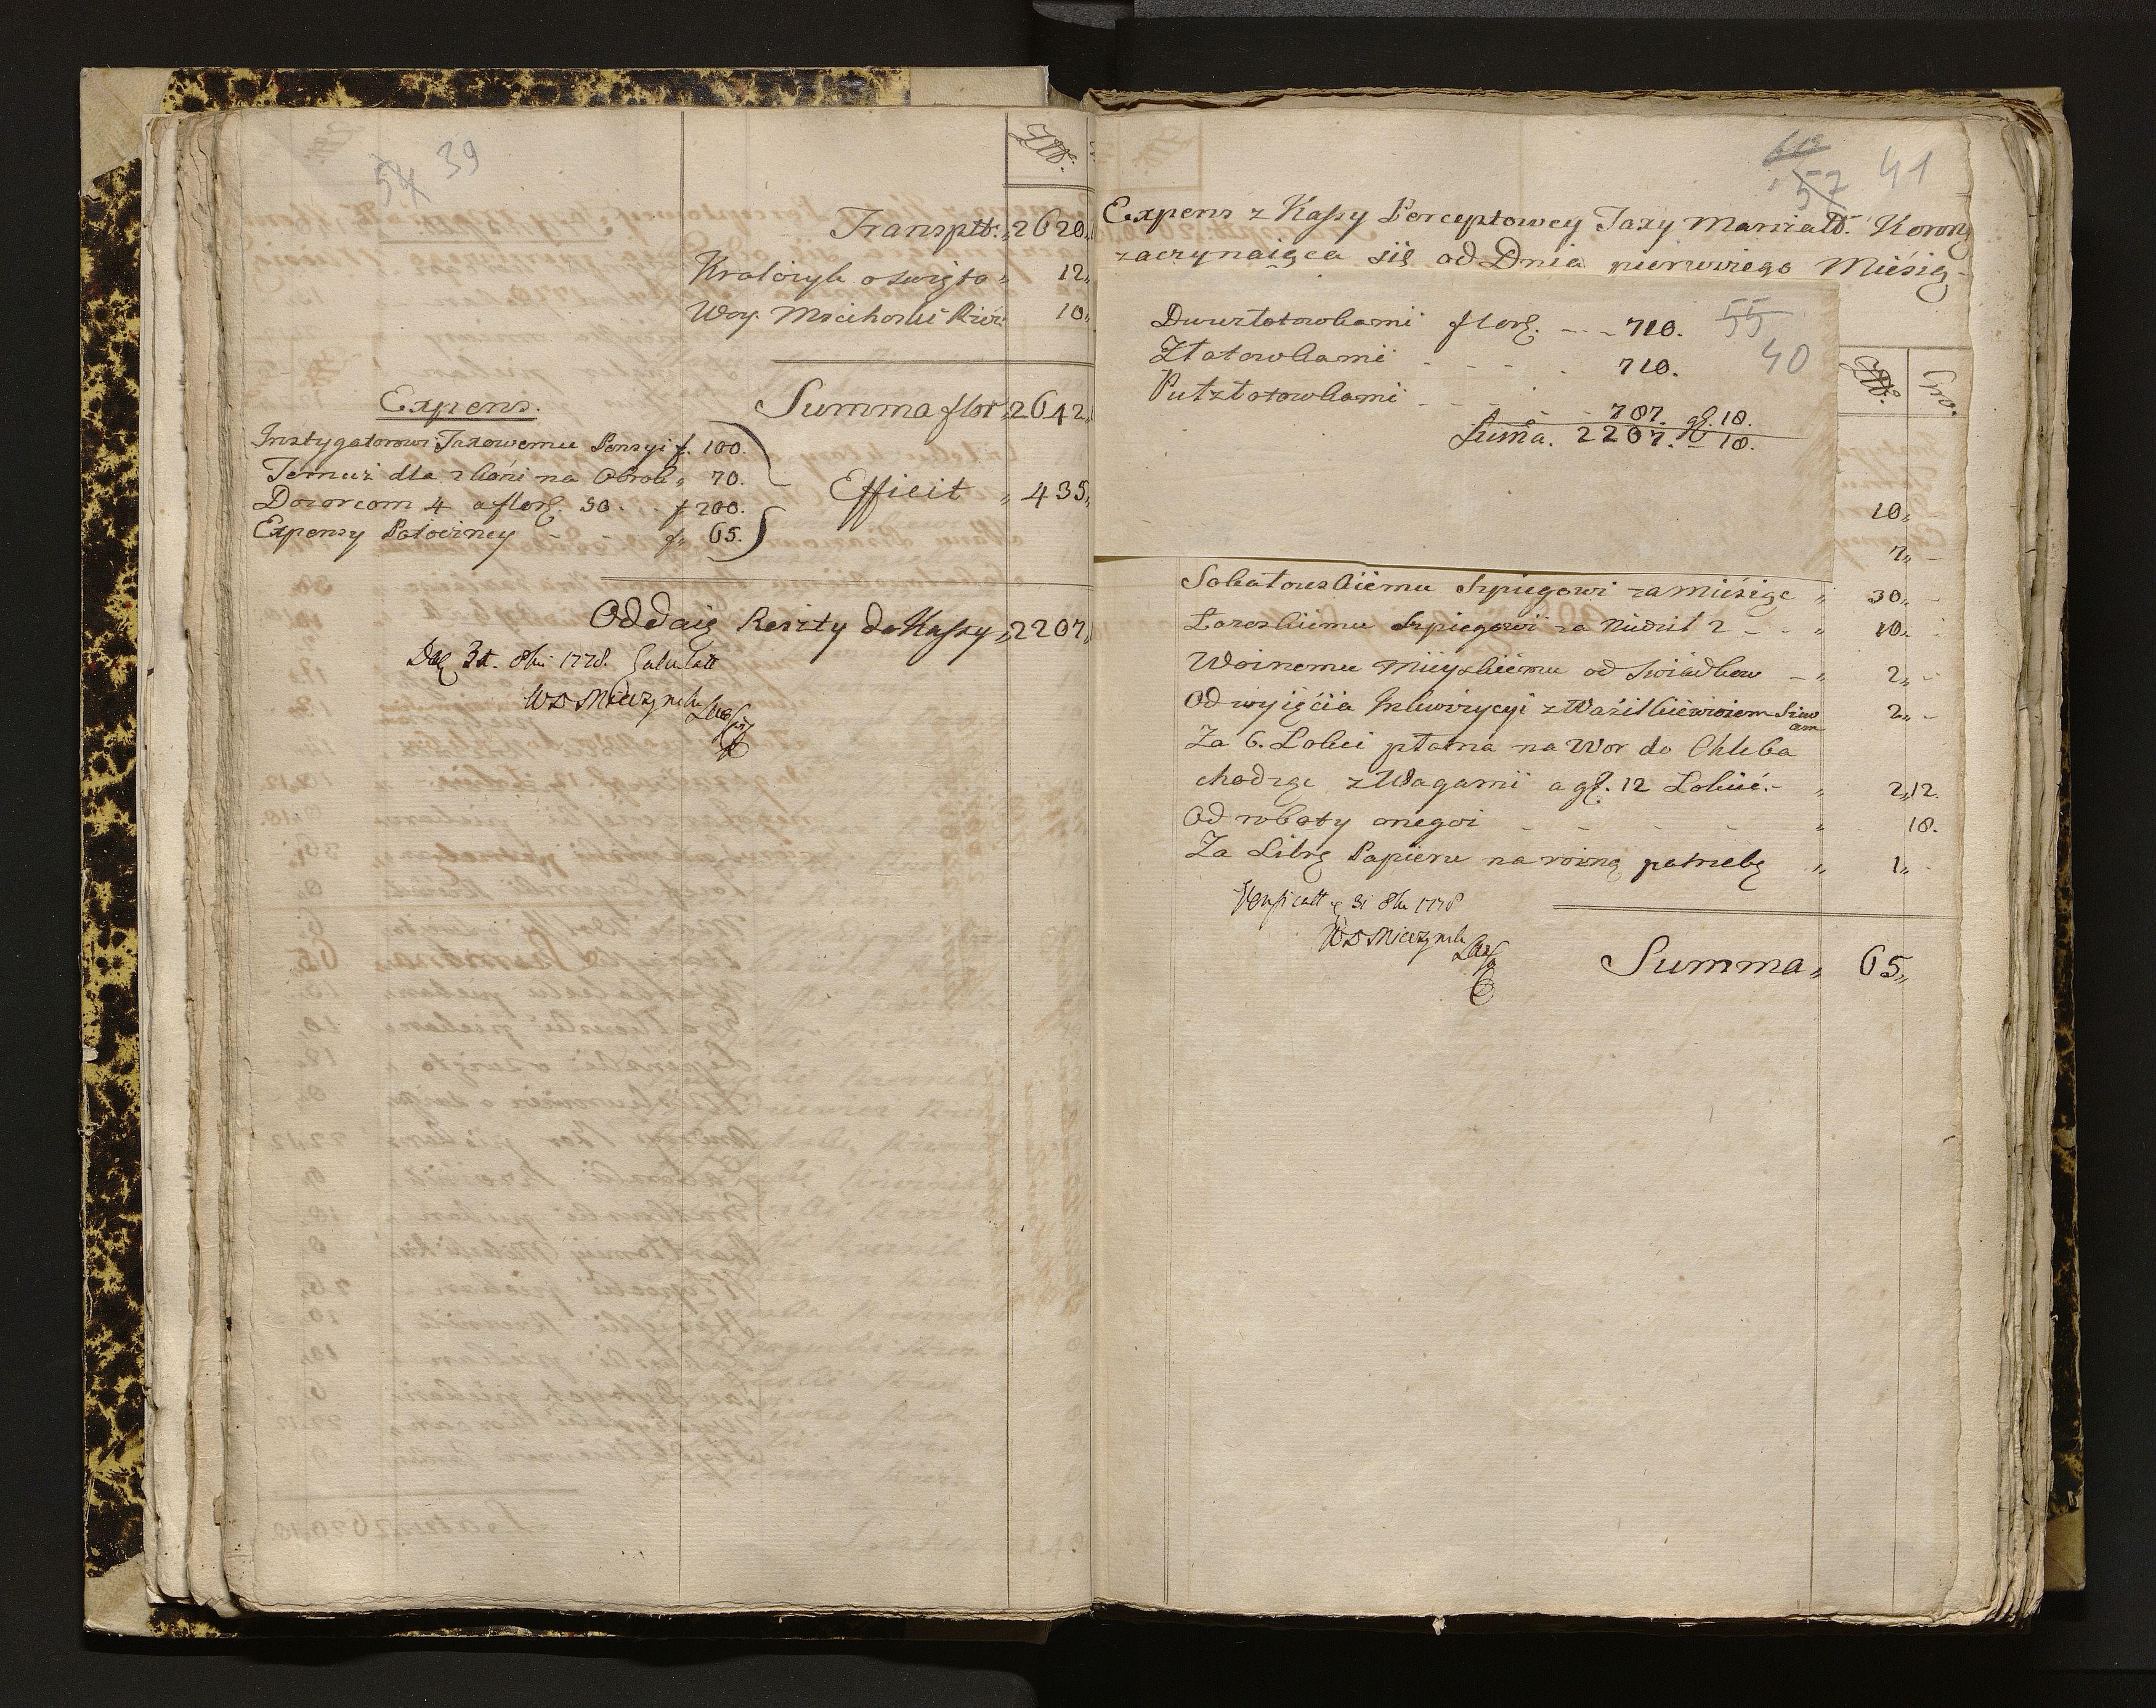 54 39
Złł.
Transptt: " 2620 "
Kratoryk o swięto " 12 "
Woy. Miechoski Rzeź: 10 "
Summa flor " 2642 "
Expens.
Instygatorowi Taxowemu Pensyi f. 100.
Temuż dla 2 koni na Obrok " 70.
Dozorcom 4 a flor. 50 - f 200.
Expensy Potoczney - - f " 65.
Efficit " 435 "
Oddaię Reszty do Kassy " 2207 "
31. 8bris 1778. Calculatt
WD Mieczynski
57 41
Expens z Kassy Perceptowey Taxy Marszałł. Koronn
zaczynaiąca się od Dnia pierwszego Miesią-
Dwuzłotowkami flor. - - - 710. 55
Złotowkami - - - - 710. 40
Pułzłotowkami - - - - 787. gł. 18.
Suma. 2207. - 18.
Złł. Gro.
10 " -
7 " -
Sokołowskiemu Szpiegowi za miesiąc " 30 " -
Lozeskiemu Szpiegowi za Niedziel 2 - - " 10 " -
Woznemu Mieyskiemu od Swiadkow - " 2 " -
Od wyięcia Inkwizycyi z Wasilkiewiczem " 2 " -
Za 6. Łokci płotna na Wor do Chleba
chodząc z Wagami a gł. 12 Łokieć. - " 2 " 12.
Od roboty onegoż - - - - " 18.
Za Librę Papieru na rożną potrzebę " 1 " -
Verificatt 31 8bris 1778
WD Mieczynski
Summa " 65 "